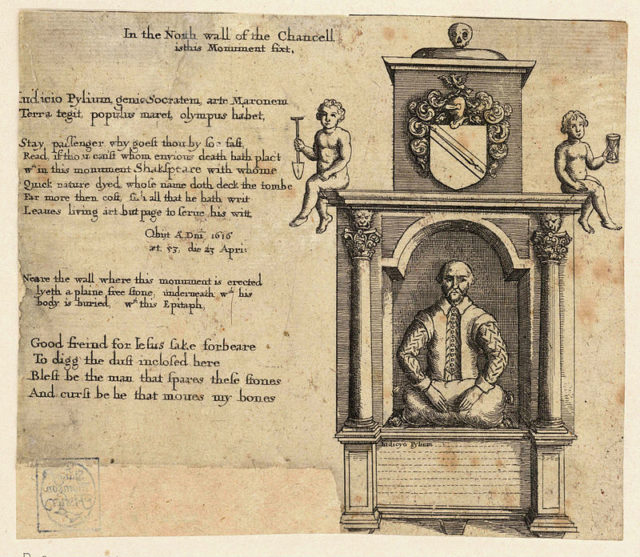 In the North wall of the Chancell
is this Monument fixt.
Iudicio Pylium, genio Socratem, arte Maronem
Terra tegit, populus maret, olympus habet,
Stay passenger why goest thou by soe fast,
Read if thou canst whom envious death hath plact
wth in this monument Shakspeare with whome
Quick nature dyed whose name doth deck the tombe
Far more then cost, all that he hath writ
Leaues living art but page to serue his witt
Obijt A Dni 1616
æt. 53, die 23 Apri:
Neare the wall where this monument is erected
lyeth a plaine free stone, underneath wch his
body is buried, wth this Epitaph,
Good freind for Iesus sake forbeare
To digg the dust inclosed here
Blest be the man that spares these stones
And curst be he that moues my bones
Iudicyo Pylium